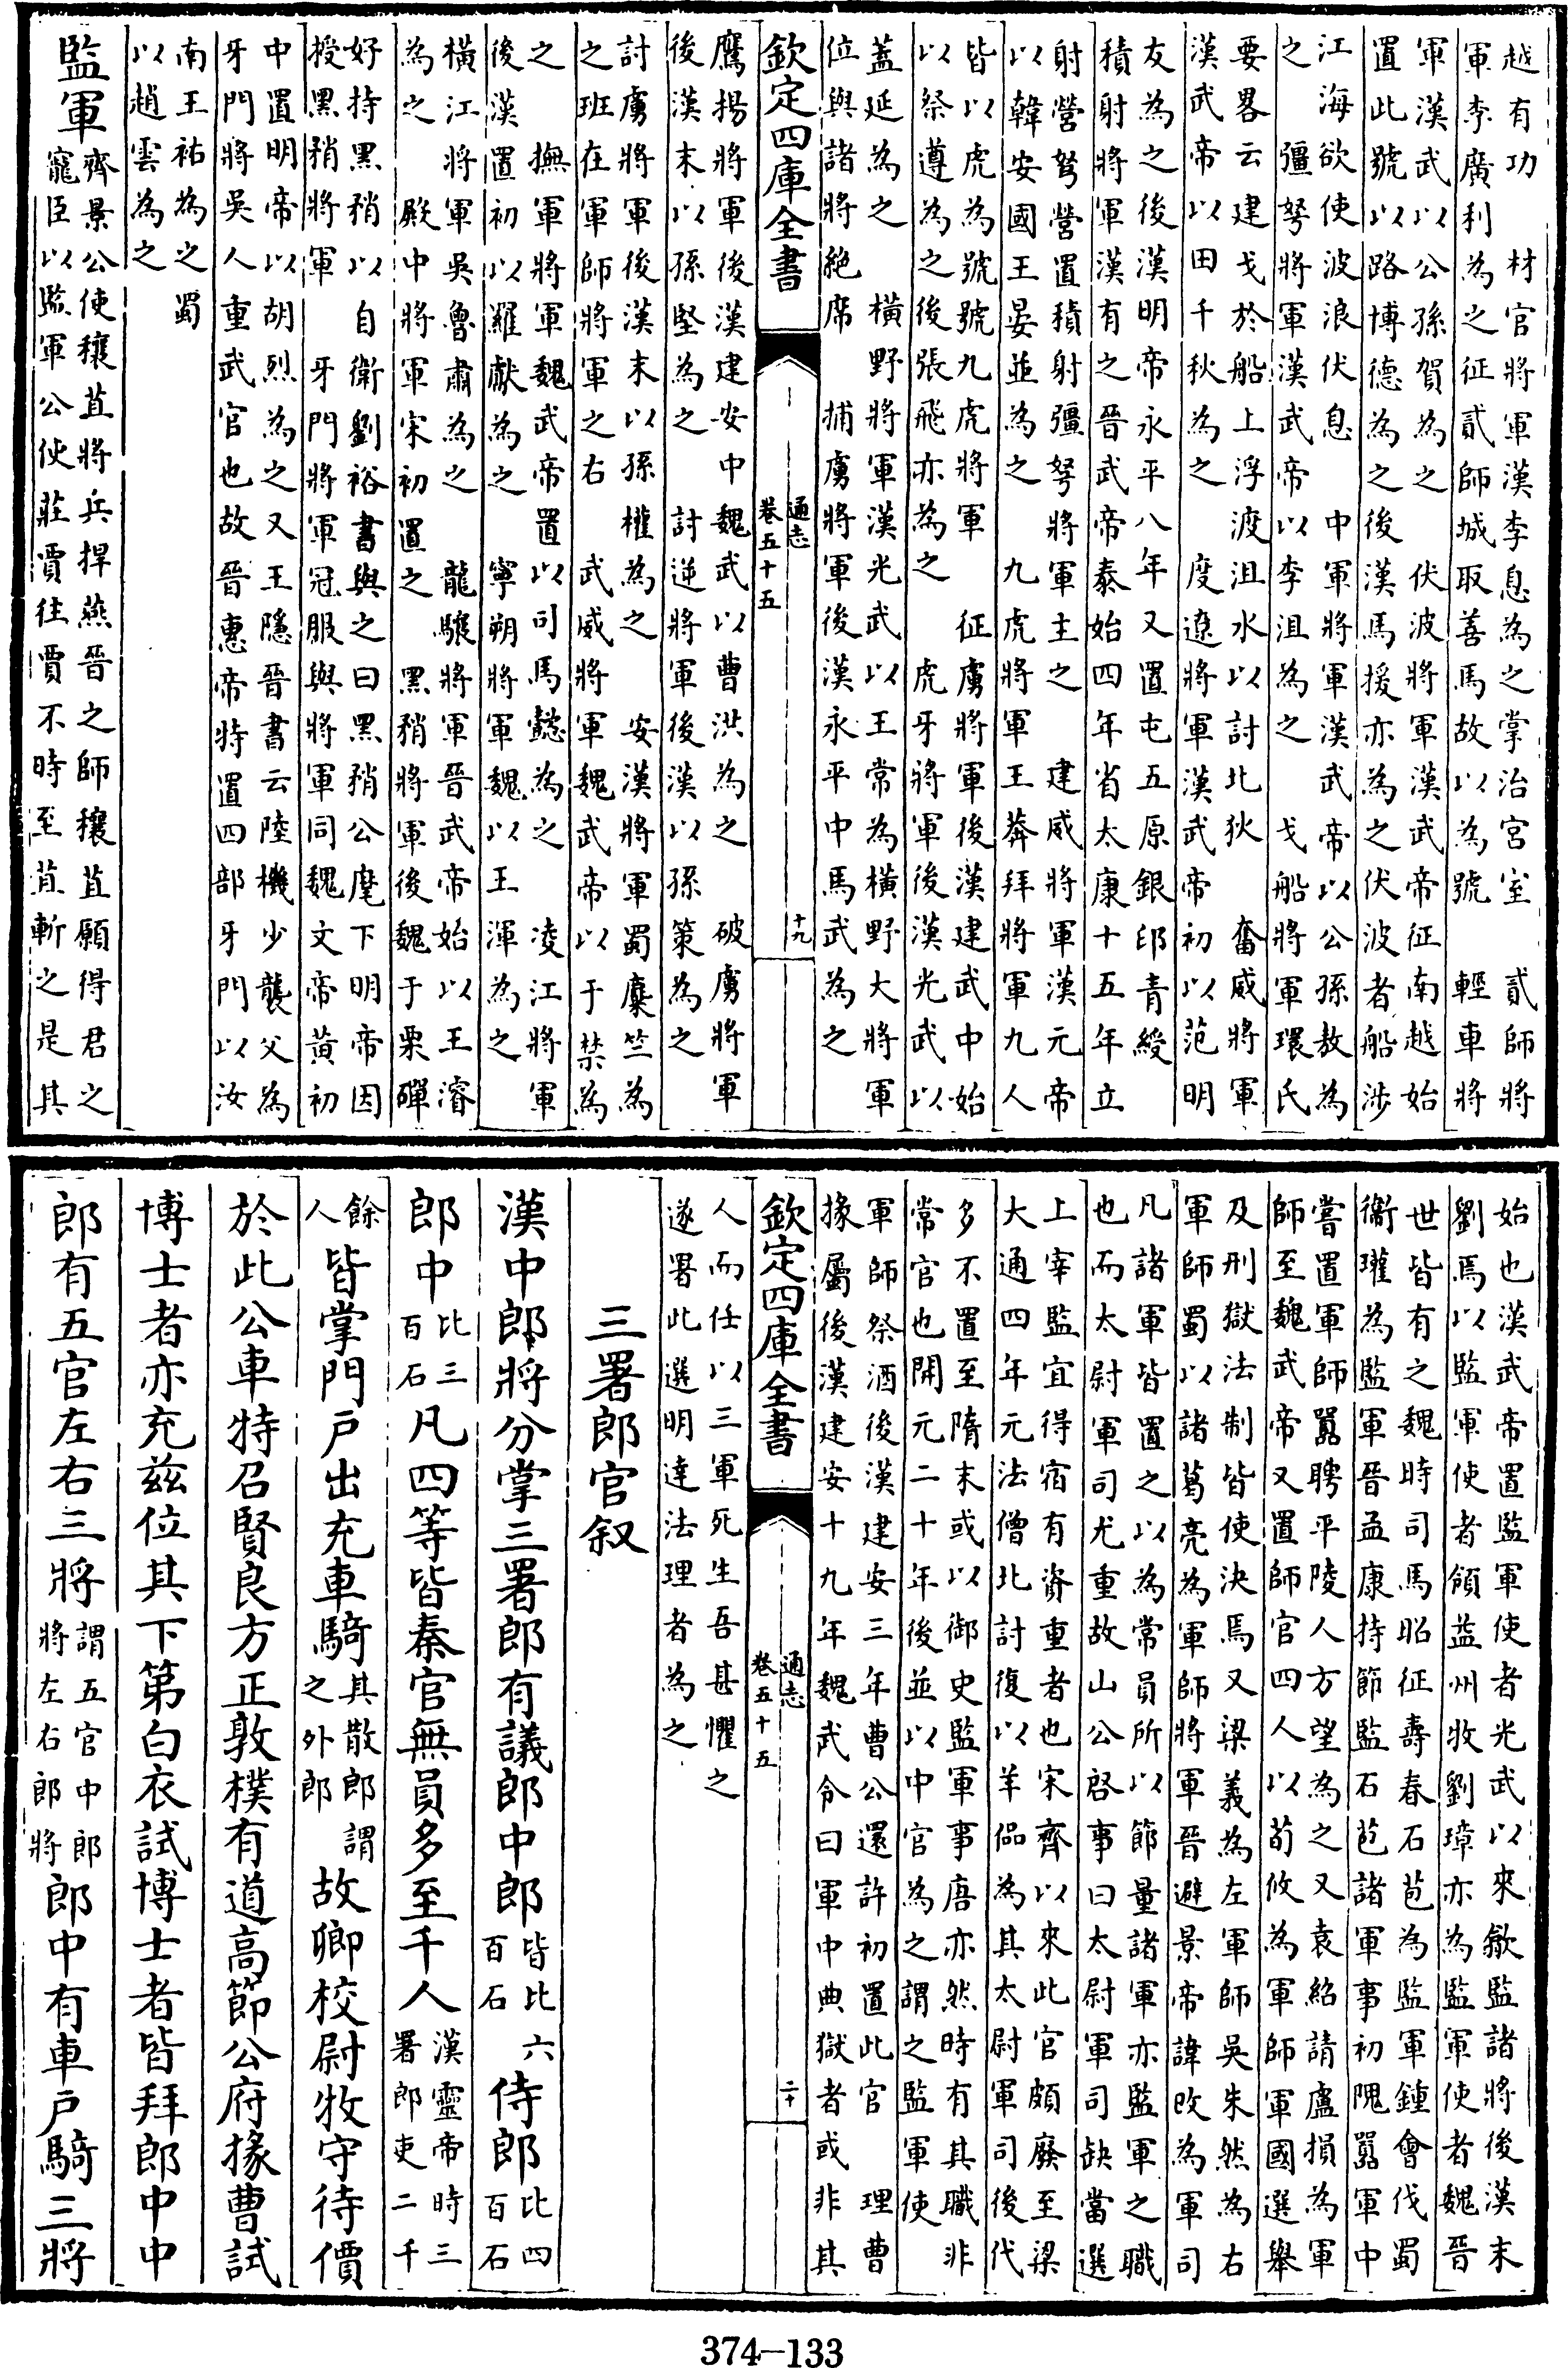 越有功　材官將軍漢李息為之掌治宮室　貳師將
軍李廣利為之征貳師城取善馬故以為號　輕車將
軍漢武以公孫賀為之　伏波將軍漢武帝征南越始
置此號以路博德為之後漢馬援亦為之伏波者船涉
江海欲使波浪伏息　中軍將軍漢武帝以公孫敖為
之　彊弩將軍漢武帝以李沮為之　戈船將軍環氏
要畧云建戈於船上浮渡沮水以討北狄　奮威將軍
漢武帝以田千秋為之　度遼將軍漢武帝初以范明
友為之後漢明帝永平八年又置屯五原銀印青綬
積射將軍漢有之晉武帝泰始四年省太康十五年立
射營弩營置積射彊弩將軍主之　建威將軍漢元帝
以韓安國王晏並為之　九虎將軍王莽拜將軍九人
皆以虎為號號九虎將軍　征虜將軍後漢建武中始
以祭遵為之後張飛亦為之　虎牙將軍後漢光武以
蓋延為之　橫野將軍漢光武以王常為橫野大將軍
位與諸將絕席　捕虜將軍後漢永平中馬武為之
欽定四庫全書
通志
卷五十五
十九
鷹揚將軍後漢建安中魏武以曹洪為之　破虜將軍
後漢末以孫堅為之　討逆將軍後漢以孫策為之
討虜將軍後漢末以孫權為之　安漢將軍蜀麋竺為
之班在軍師將軍之右　武威將軍魏武帝以于禁為
之　撫軍將軍魏武帝置以司馬懿為之　凌江將軍
後漢置初以羅獻為之　寧朔將軍魏以王渾為之
橫江將軍吳魯肅為之　龍驤將軍晉武帝始以王濬
為之　殿中將軍宋初置之　黑矟將軍後魏于栗磾
好持黑矟以自衛劉裕書與之曰黑矟公麾下明帝因
授黑矟將軍　牙門將軍冠服與將軍同魏文帝黃初
中置明帝以胡烈為之又王隱晉書云陸機少襲父為
牙門將吳人重武官也故晉惠帝特置四部牙門以汝
南王祐為之蜀
以趙雲為之
監軍
齊景公使穰苴將兵捍燕晉之師穰苴願得君之
寵臣以監軍公使莊賈往賈不時至苴斬之是其
始也漢武帝置監軍使者光武以來歙監諸將後漢末
劉焉以監軍使者領益州牧劉璋亦為監軍使者魏晉
世皆有之魏時司馬昭征壽春石苞為監軍鍾會伐蜀
衞瓘為監軍晉孟康持節監石苞諸軍事初隗囂軍中
嘗置軍師囂聘平陵人方望為之又袁紹請盧損為軍
師至魏武帝又置師官四人以荀攸為軍師軍國選舉
及刑獄法制皆使決焉又梁義為左軍師吳朱然為右
軍師蜀以諸葛亮為軍師將軍晉避景帝諱改為軍司
凡諸軍皆置之以為常員所以節量諸軍亦監軍之職
也而太尉軍司尤重故山公啓事曰太尉軍司缺當選
上宰監宜得宿有資重者也宋齊以來此官頗廢至梁
大通四年元法僧北討復以羊侃為其太尉軍司後代
多不置至隋末或以御史監軍事唐亦然時有其職非
常官也開元二十年後並以中官為之謂之監軍使
軍師祭酒後漢建安三年曹公還許初置此官　理曹
掾屬後漢建安十九年魏武令曰軍中典獄者或非其
欽定四庫全書
通志
卷五十五
二十
人而任以三軍死生吾甚懼之
遂署此選明達法理者為之
三署郎官叙
漢中郎將分掌三署郎有議郎中郎皆比六百石侍郎比四百石
郎中比三百石凡四等皆秦官無員多至千人漢靈帝時三署郎吏二千
餘人皆掌門戶出充車騎其散郎謂之外郎故卿校尉牧守待價
於此公車特召賢良方正敦樸有道高節公府掾曹試
博士者亦充兹位其下第白衣試博士者皆拜郎中中
郎有五官左右三將謂五官中郎將左右郎將郎中有車戶騎三將
374-133